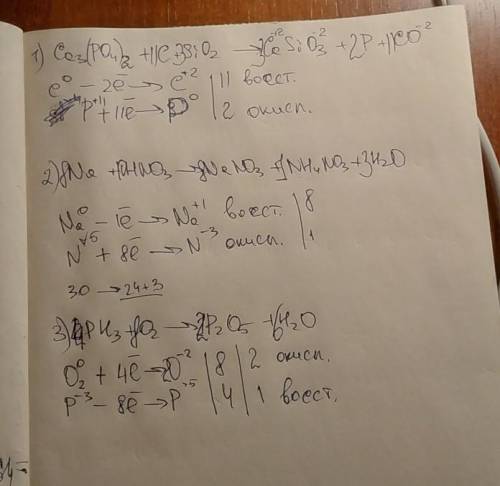 1) Ca3(PO4)2 + 11C + 3SiO2 → 3CaSiO3 + 2P + 11CO
C⁰ - 2e̅ → C⁺² | 11 восст.
P⁺¹¹ + 11e̅ → P⁰ | 2 окисл.
2) 8Na + 10HNO3 → 8NaNO3 + 1NH4NO3 + 3H2O
Na⁰ - 1e̅ → Na⁺¹ восст. | 8
N⁺⁵ + 8e̅ → N⁻³ окисл. | 1
30 → 24+3
3) 4PH3 + 8O2 → 2P2O5 + 6H2O
O2⁰ + 4e̅ → 2O⁻² | 8 | 2 окисл.
P⁻³ - 8e̅ → P⁺⁵ | 4 | 1 восст.